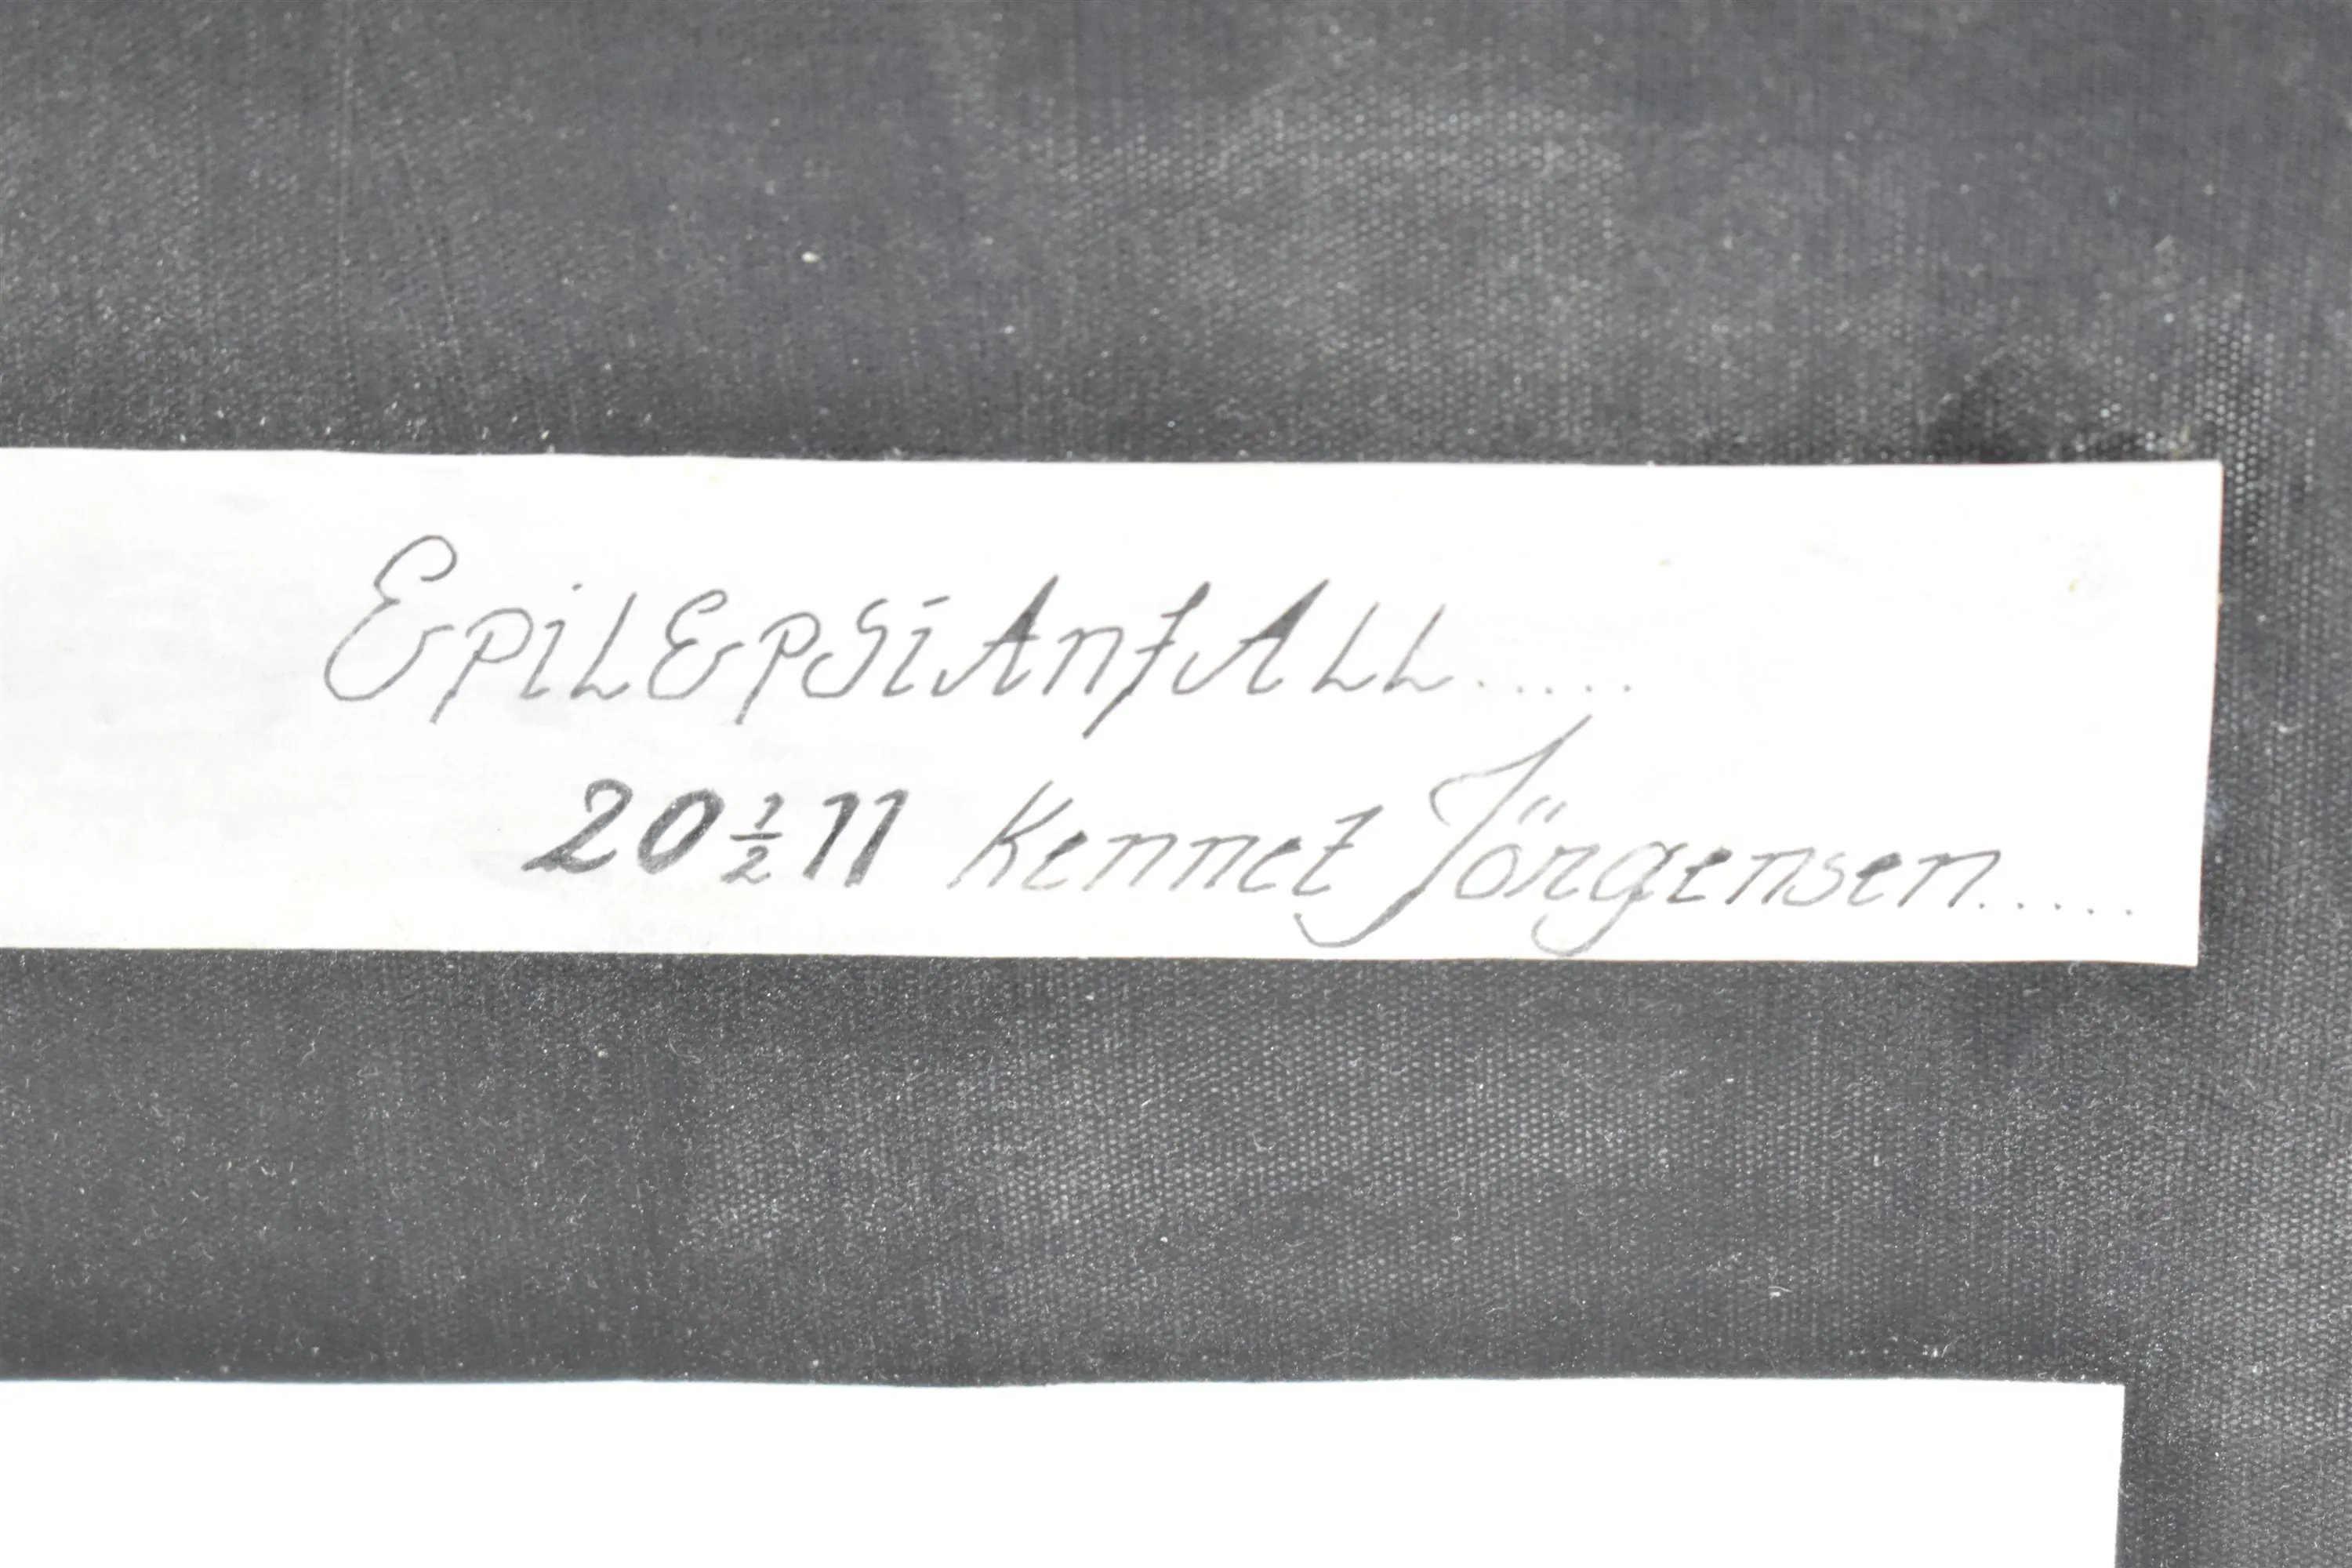 EpilEpSiAnfAll.....
20½11 Kennet Jörgensen.....